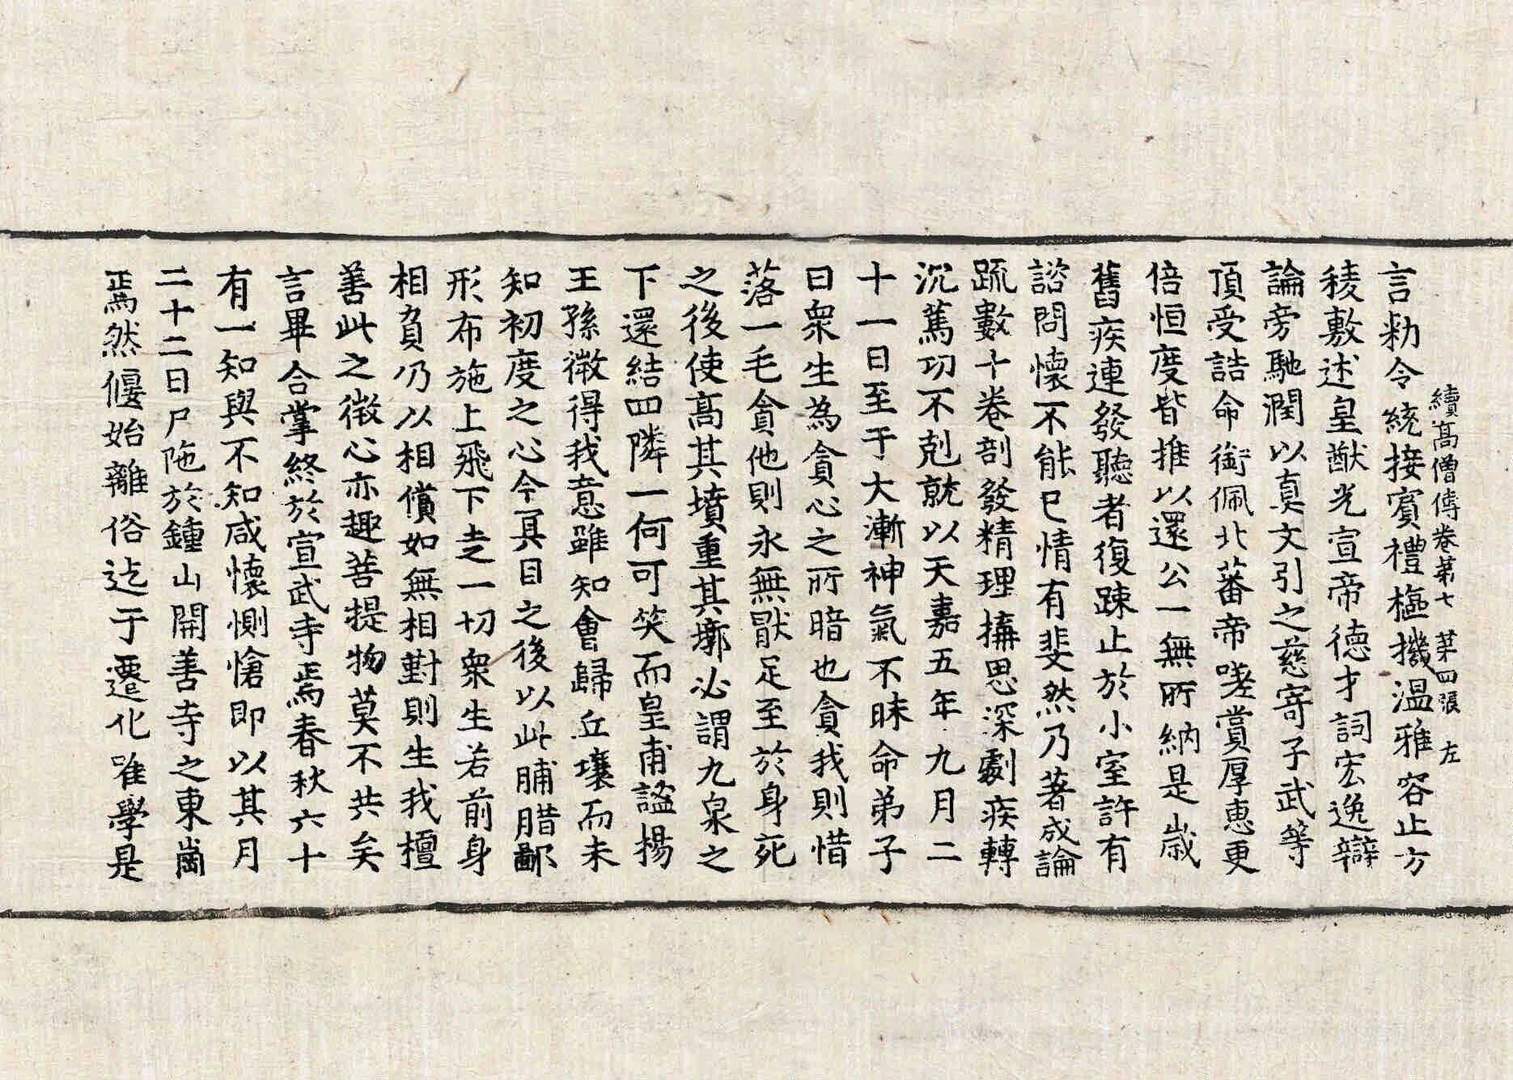 續高僧傳卷第七 第四張 左
言勑令統接賓禮樞機溫雅容止方
稜敷述皇猷光宣帝德才詞宏逸辯
論旁馳潤以真文引之慈寄子武等
頂受誥命銜佩北蕃帝嗟賞厚惠更
倍恒度皆推以還公一無所納是歲
舊疾連發聽者復踈止於小室許有
諮問懷不能已情有斐然乃著成論
疏數十卷剖發精理搆思深劇疾轉
沉篤功不剋就以天嘉五年九月二
十一日至于大漸神氣不昧命弟子
曰衆生為貪心之所暗也貪我則惜
落一毛貪他則永無猒足至於身死
之後使高其墳重其槨必謂九泉之
下還結四隣一何可笑而皇甫謐楊
王孫微得我意雖知會歸丘壤而未
知初度之心今冥目之後以此脯腊鄙
形布施上飛下走一切衆生若前身
相負乃以相償如無相對則生我檀
善此之微心亦趣菩提物莫不共矣
言畢合掌終於宣武寺焉春秋六十
有一知與不知咸懷惻愴即以其月
二十二日尸陁於鍾山開善寺之東崗
焉然偃始離俗迄于遷化唯學是